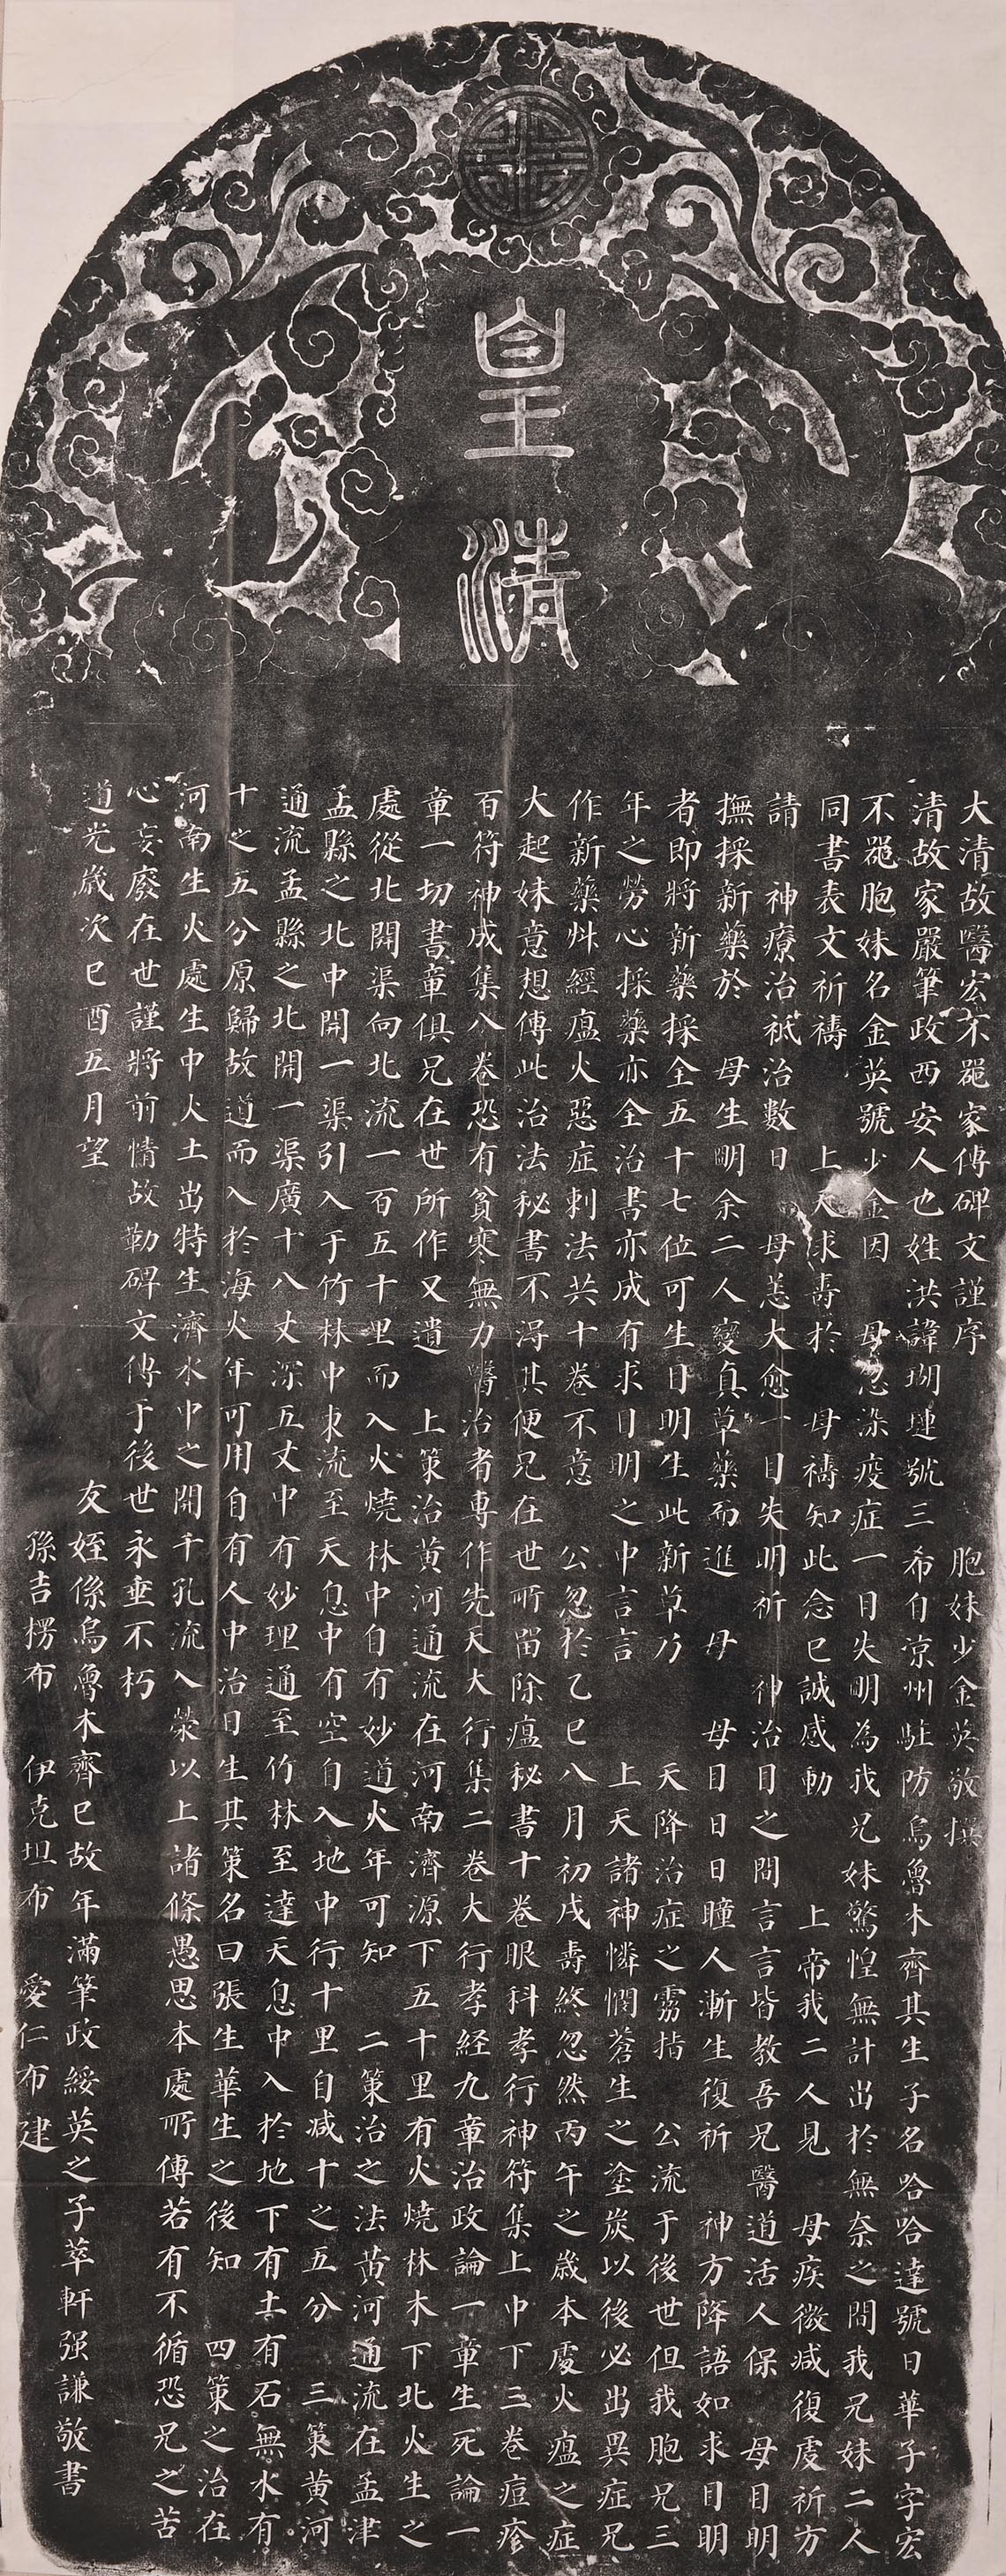 皇清
大清故醫宏不器家傳碑文謹序 胞妹少金英敬撰
清故家嚴筆政西安人也姓洪諱瑚璉號三希自涼州駐防烏魯木齊其生子名哈哈達號日華子字宏
不器胞妹名金英號少金因 母忽染疫症一目失明為我兄妹驚惶無計出於無奈之間我兄妹二人
同書表文祈禱 上天求壽於 母禱知此念已誠感動 上帝我二人見 母疾微減復虔祈方
請 神療治祇治數日 母恙大愈一目失明祈 神治目之間言言皆教吾兄醫道活人保 母目明
撫採新藥於 母生明余二人變真草藥而進 母 母日日日瞳人漸生復祈 神方降語如求目明
者即將新藥採全五十七位可生目明生此新草乃 天降治症之霧捨 公流于後世但我胞兄三
年之勞心採藥亦全治書亦成有求目明之中言言 上天諸神憐憫蒼生之塗炭以後必出異症兄
作新藥艸經瘟火惡症刺法共十卷不意 公忽於乙巳八月初戌壽終忽然丙午之歲本處火瘟之症
大起妹意想傳此治法秘書不淂其便兄在世所留除瘟秘書十卷眼科孝行神符集上中下三卷痘疹
百符神成集八卷恐有貧寒無力醫治者專作先天大行集二卷大行孝経九章治政論一章生死論一
章一切書章俱兄在世所作又遺 上策治黄河通流在河南濟源下五十里有火燒林木下北火生之
處從北開渠向北流一百五十里而入火燒林中自有妙道火年可知 二策治之法黄河通流在孟津
孟縣之北中開一渠引入于竹林中東流至天息中有空自入地中行十里自減十之五分 三策黄河
通流孟縣之北開一渠廣十八丈深五丈中有妙理通至竹林至達天息中入於地下有土有石無水有
十之五分原歸故道而入於海火年可用自有人中治日生其策名曰張生華生之後知 四策之治在
河南生火處生中火土出特生濟水中之開千孔流入滎以上諸條愚思本處所傳若有不循恐兄之苦
心妄廢在世謹將前情故勒碑文傳于後世永垂不朽
道光歲次己酉五月望 友姪係烏魯木齊已故年滿筆政綏英之子萃軒强謙敬書
孫吉楞布 伊克坦布 愛仁布建